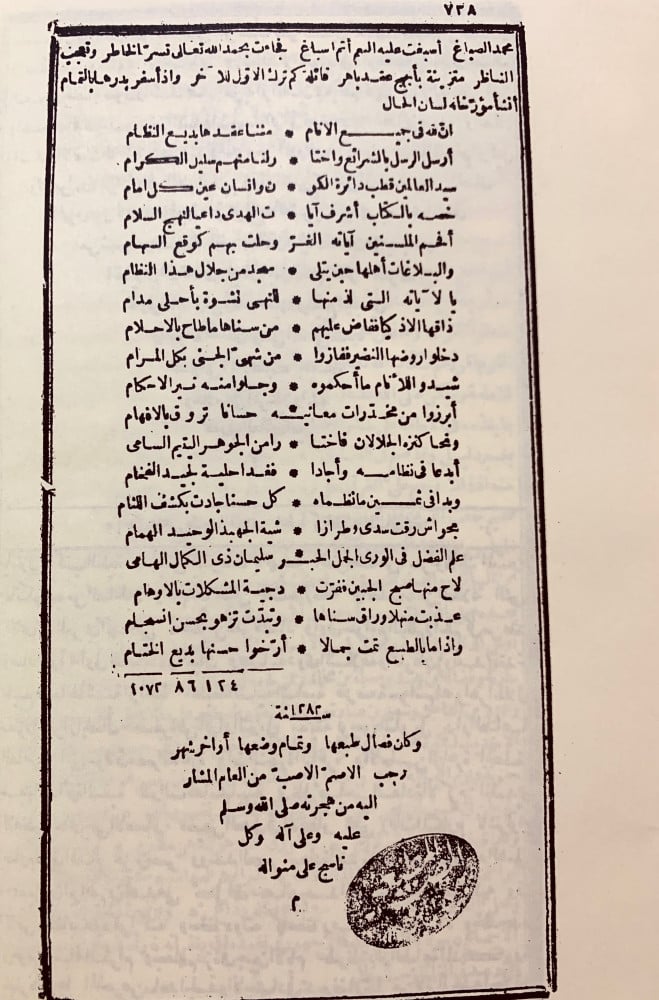 ٧٣٨
محمد الصباغ أسبغت عليه النعم أتم اسباغ فجاءت بحمد الله تعالى تسر الخاطر وتعجب
الناظر متزينة بأبهج عقد باهر قائلة كم ترك الاول للآخر واذ أسفر بدرها بالتمام
أنشأ مؤرخا له لسان الحال
ان لله فى جميع الانام * مننا عقدها بديع النظام
أرسل الرسل بالشرائع واختا * ر لنا منهم سليل الكرام
سيد العالمين قطب دائرة الكو * ن وانسان عين كل امام
خصه بالكتاب أشرف آيا * ت الهدى داعيا لنهج السلام
أفحم الملسنين آياته الغر وحلت بهم كوقع السهام
والبلاغات أهلها حين يتلى * سجد من جلال هذا النظام
يا لآياته التى لذ منها * للنهى نشوة بأحلى مدام
ذاقها الاذكيا ففاض عليهم * من سناها ما طاح بالاحلام
دخلوا روضها النضير ففازوا * من شهى الجنى بكل المرام
شيدوا للانام ما أحكموه * وجلوا منه نير الاحكام
أبرزوا من مخدرات معانيه حسانا تروق بالافهام
ونحا كنزه الجلالان فاختا * را من الجوهر اليتيم السامى
أبدعا فى نظامه وأجادا * فغدا حلية لجيد الفخام
وبدا فى ثمين ما نظماه * كل حسنا جادت بكشف اللثام
بحواش رقت سدى وطرازا * شية الجهبذ الوحيد الهمام
علم الفضل فى الورى الجمل الحبر سليمان ذى الكمال الهامى
لاح منها صبح الجبين ففرت * دجية المشكلات بالاوهام
عذبت منهلا وراق سناها * وتبدت تزهو بحسن انسجام
واذ اما بالطبع تمت جمالا * أرخوا حسنها بديع الختام
١٢٤ ٨٦ ١٠٧٢
سنة ١٢٨٢
وكان فصال طبعها وتمام وضعها أواخر شهر
رجب الاصم الاصب من العام المشار
اليه من هجرته صلى الله وسلم
عليه وعلى آله وكل
ناسج على منواله
م